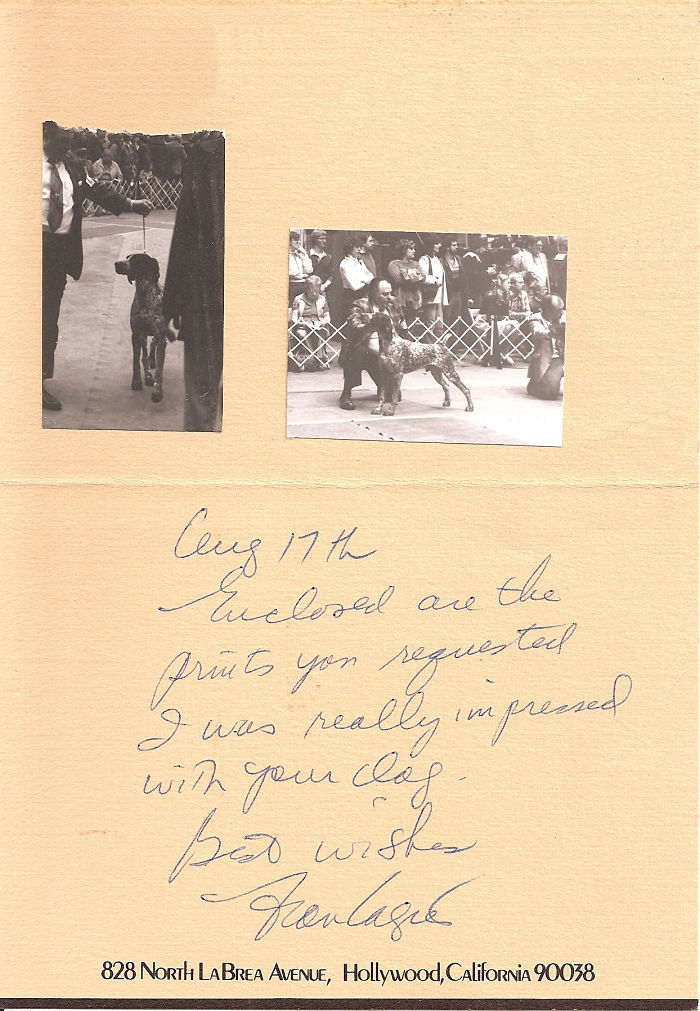 Aug 17th
Enclosed are the
prints you requested
I was really impressed
with your dog.
Best wishes
828 North La Brea Avenue, Hollywood, California 90038